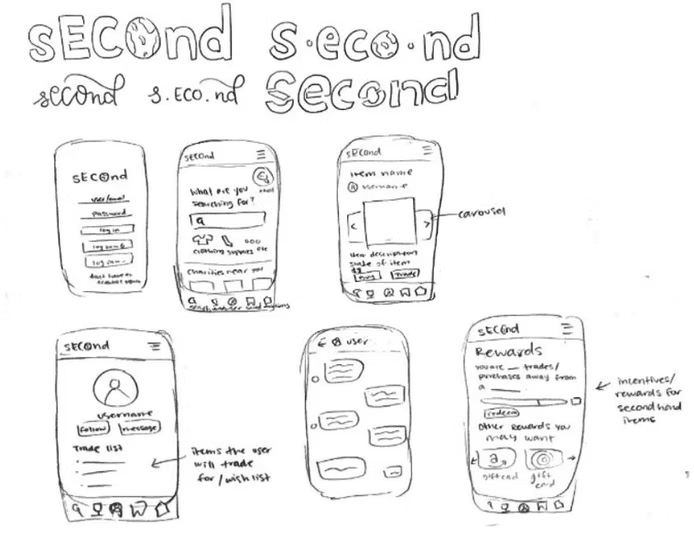 SECOnd
s·eco·nd
second
s.eco.nd
Second
SECOnd
user/email
password
log in
SECOnd
What are you
searching for?
clothing supplies etc
charities near you
SECOnd
item name
username
<
>
carousel
user description
state of item
buy
trade
SECOnd
username
follow
message
Trade list
items the user
will trade
for/wish list
user
SECOnd
Rewards
you are __ trades/
purchases away from
a ___
redeem
Other Rewards you
may want
a
giftcard
gift
card
incentives/
rewards for
secondhand
items